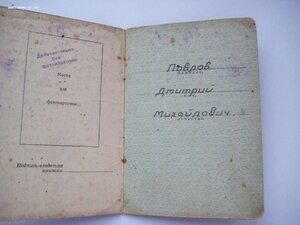 Действительно
без
фотокарточки
Место
для
фотокарточки
Подпись владельца
книжки
Павров
фамилия
Дмитрий
имя
Михайлович
отчество